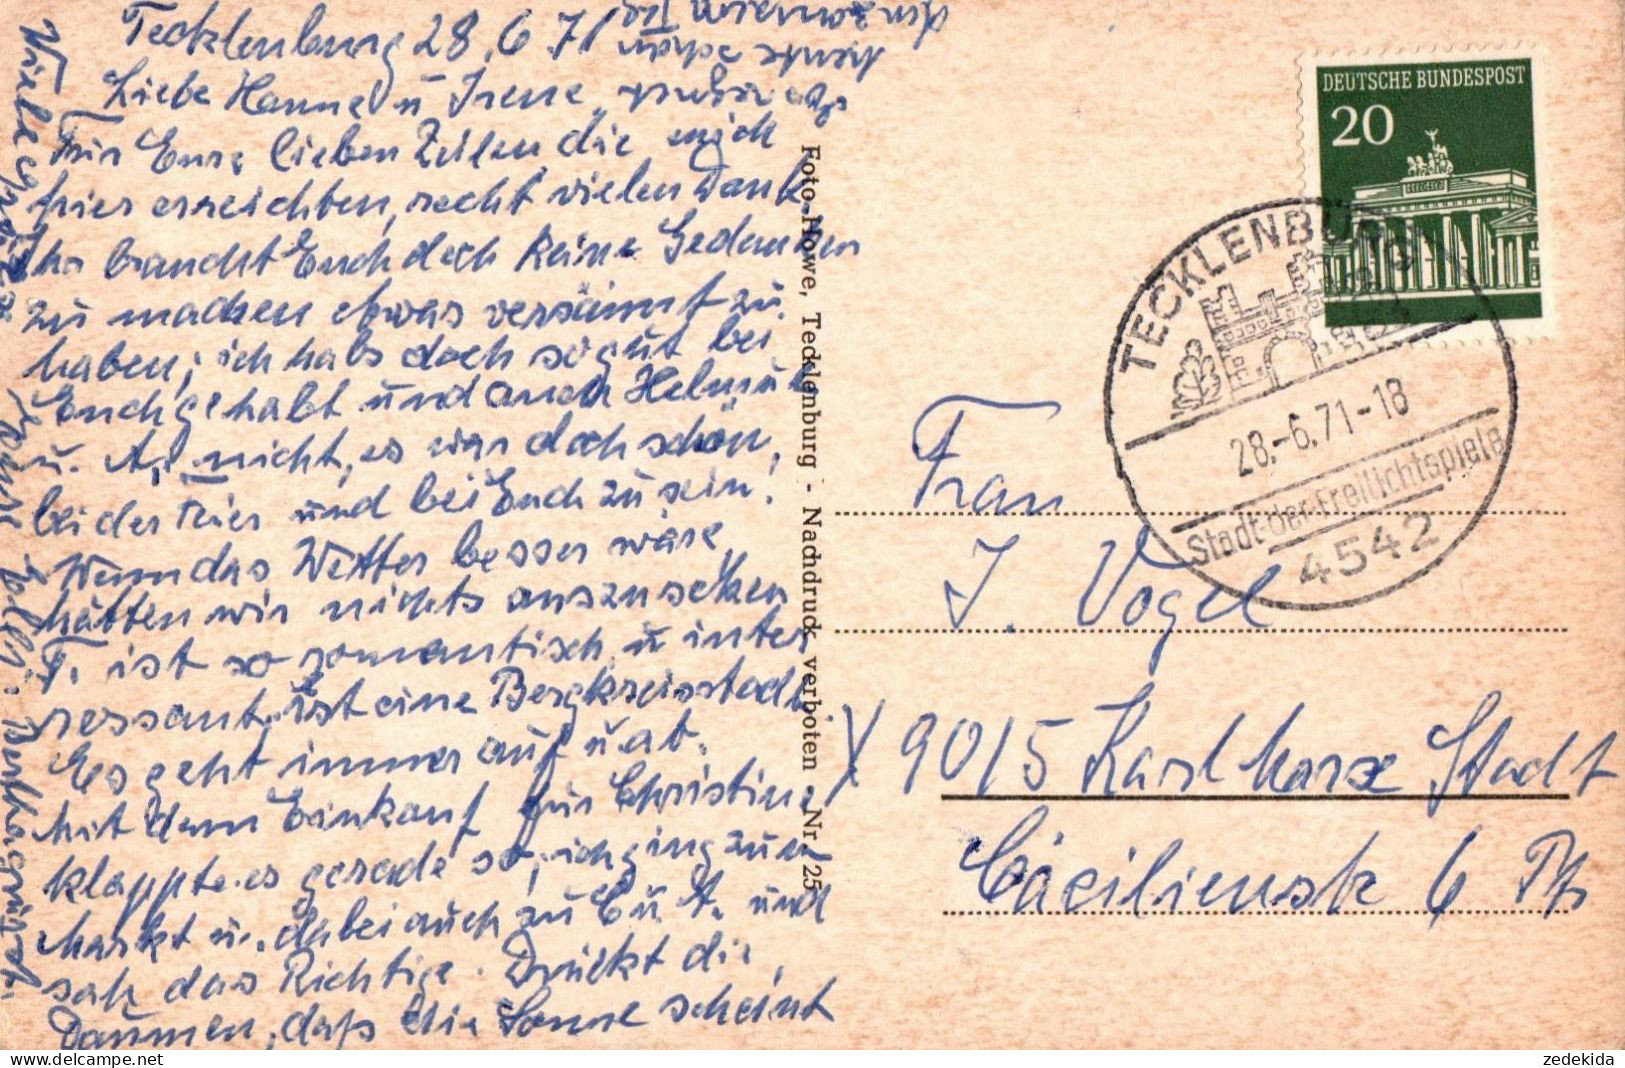 Tecklenburg 28.6.71
Liebe Hanne u Irene,
Für Eure lieben Zeilen die mich
hier erreichten, recht vielen Dank.
Ihr braucht Euch doch keine Gedanken
zu machen etwas versäumt zu
haben; ich habs doch so gut bei
Euch gehabt und auch Helmut
u. A. nicht, es war doch schön,
bei der Feier und bei Euch zu sein!
Wenn das Wetter besser wäre,
hätten wir nichts auszusetzen
T. ist so romantisch u inter
ressant, ist eine Bergkreisstadt
Es geht immer auf u ab.
Mit dem Einkauf für Christine
klappte es gerade so, ich ging zum
Markt u. dabei auch zu C u A. und
sah das Richtige. Drückt die
Daumen, daß die Sonne scheint
Viele
Foto-Howe, Tecklenburg - Nachdruck verboten Nr. 25
DEUTSCHE BUNDESPOST
20
TECKLENBURG
28.-6.71-18
Stadt-der-Freilichtspiele
4542
Frau
I. Vogel
X 9015 Karl Marx Stadt
Cäcilienstr 6
zedekida